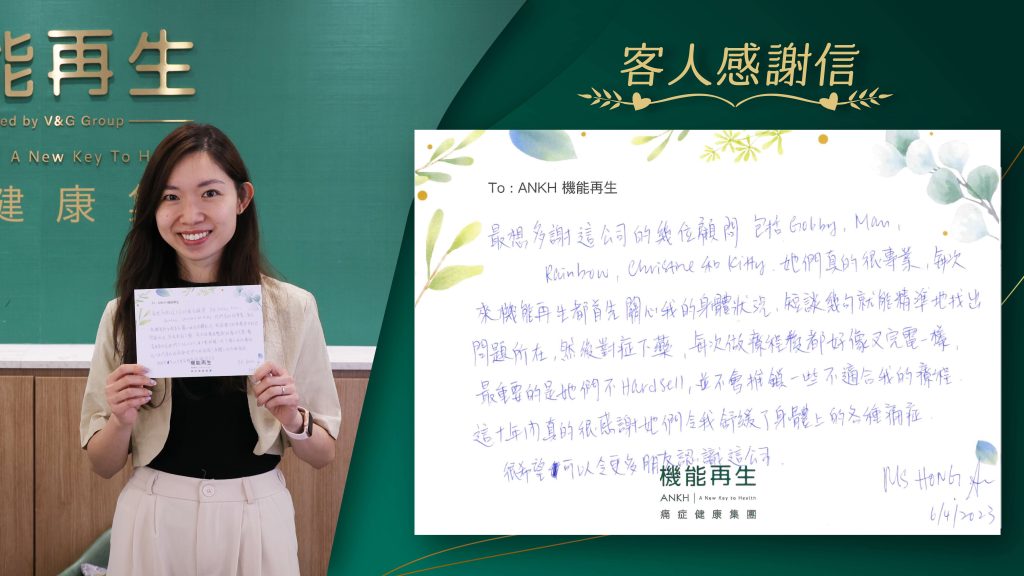 能再生
ed by V&G Group
A New Key To H
健康集
客人感謝信
To : ANKH 機能再生
最想多謝這公司的幾位顧問 包括 Gobby, Man,
Rainbow, Christine 和 Kitty. 她們真的很專業, 每次
來機能再生都首先關心我的身體狀況, 短談幾句就能精準地找出
問題所在, 然後對症下藥, 每次做療程後都好像叉完電一樣,
最重要的是她們不 Hardsell, 並不會推銷一些不適合我的療程.
這十年內真的很感謝她們令我舒緩了身體上的各種痛症.
很希望可以令更多朋友認識這公司.
機能再生
ANKH | A New Key to Health
痛症健康集團
Ms HONG
6/4/2023
機能再生